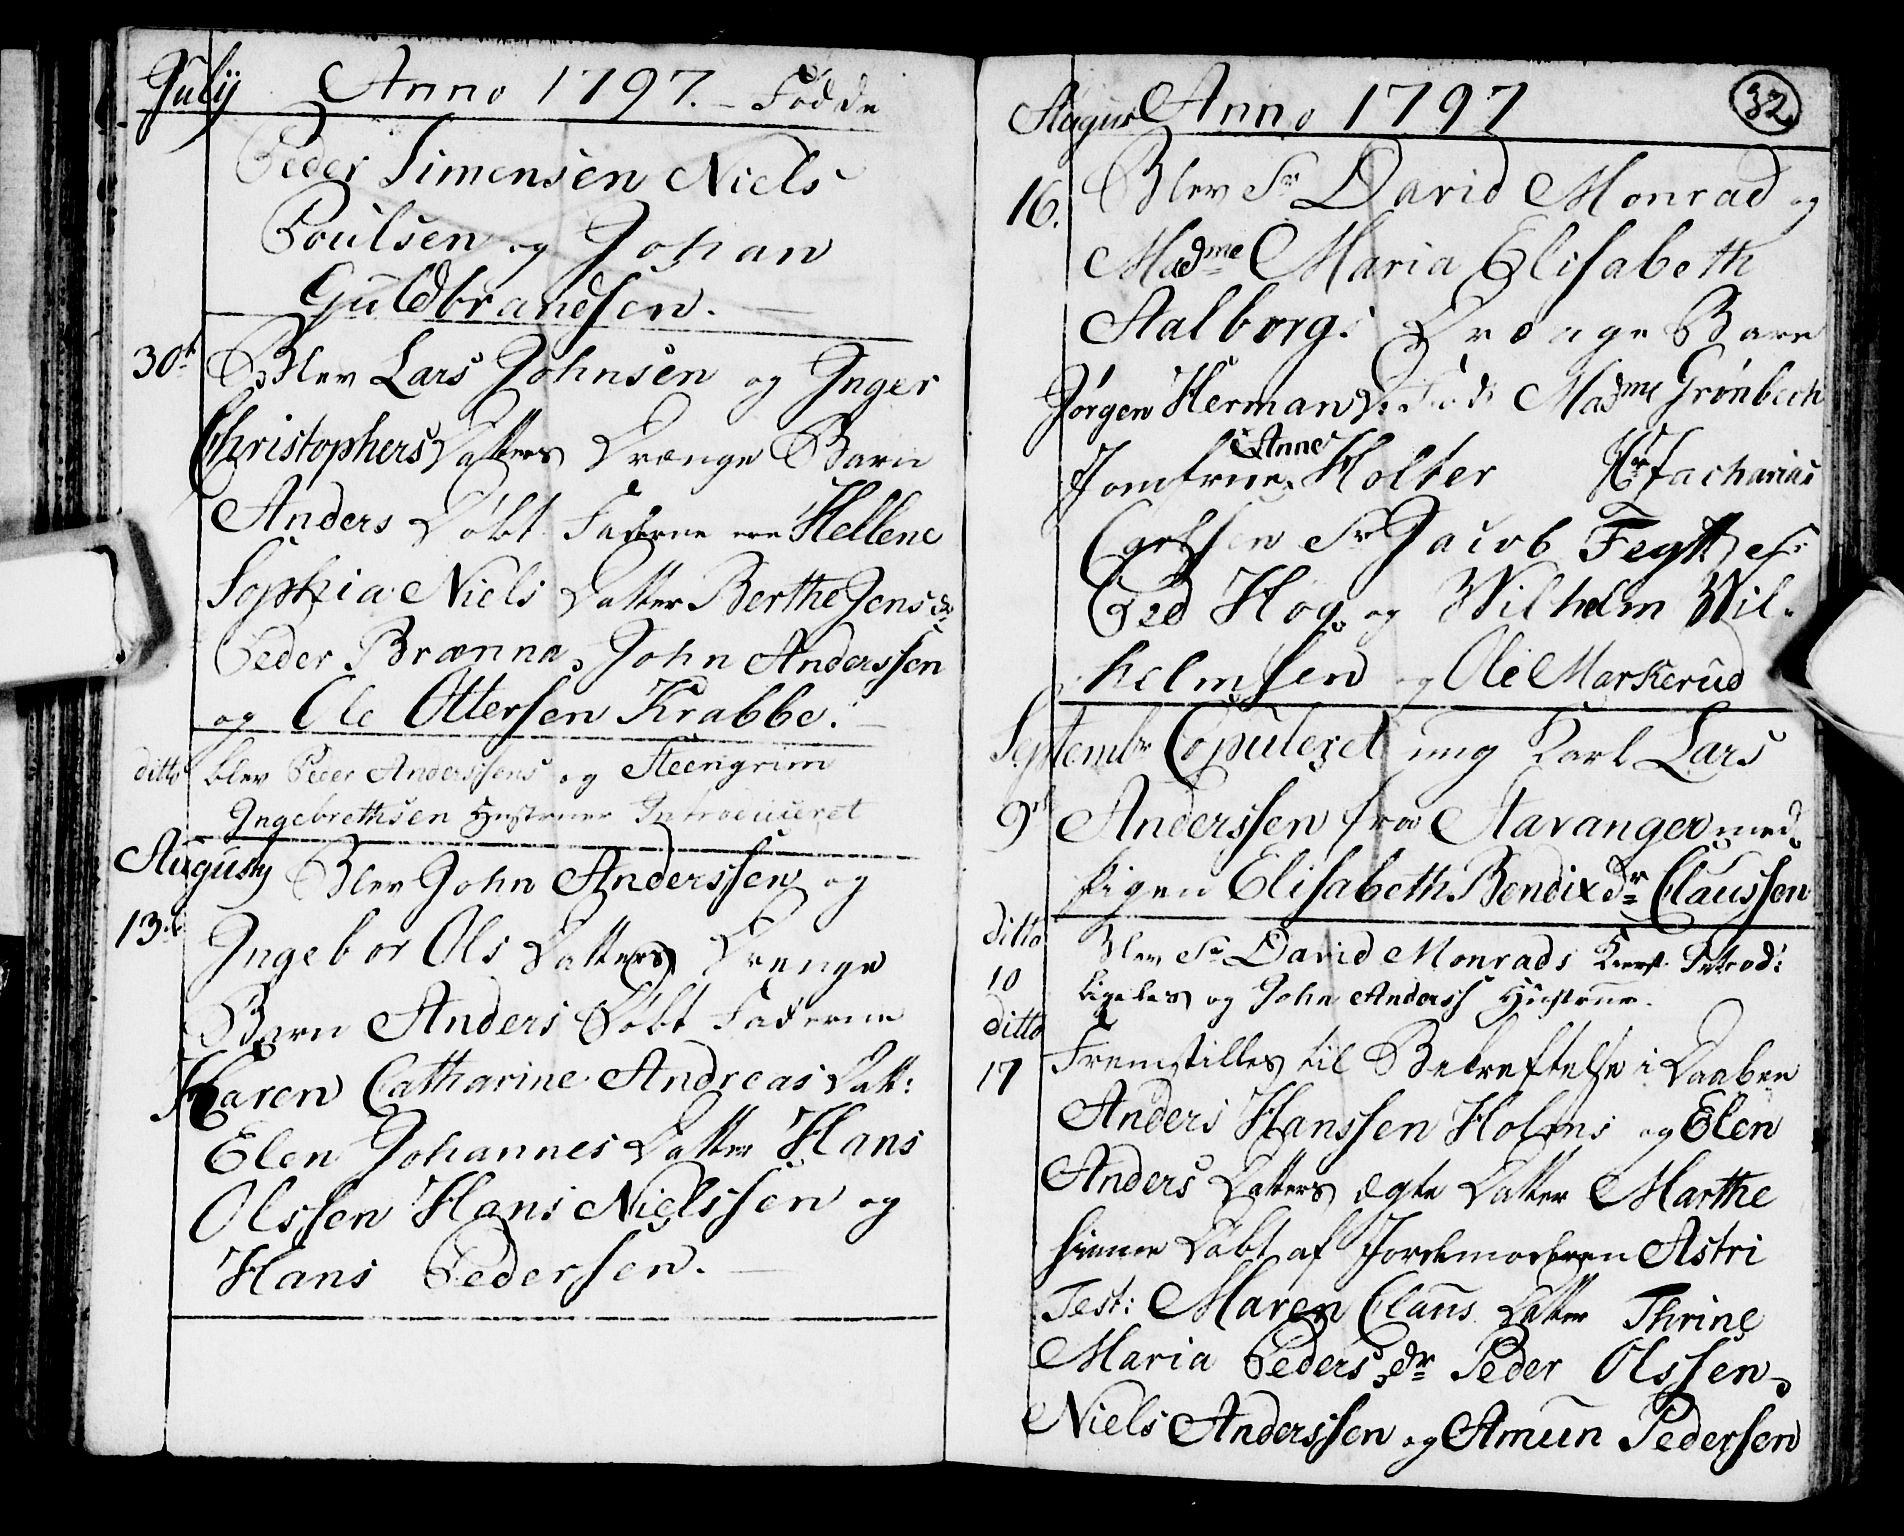 July Anno 1797. – Födde
Peder Simensen Niels
Poulsen og Johan
Guldbrandsen.
30t Blev Lars Johnsen og Inger
Christophers Datters Drænge Barn
Anders Döbt Faderne ere Hellene
Sophia Niels Datter Berthe Jens dr
Peder Brænna, John Anderssen
og Ole Ottersen Krabbe.
ditto blev Peder Anderssens og Steengrim
Ingebrethsen Hustruer Introduceret
Augusty Blev John Anderssen og
13de Ingebor Ols Datters Drenge
Barn Anders Döbt Faderne
Karen Catharine Andreas Datt:
Elen Johannes Datter Hans
Olssen Hans Nielssen og
Hans Pedersen.
August Anno 1797 32
16. Blev Sr David Monrad og
Madme Maria Elisabeth
Aalborgs Drenge Barn
Jörgen Herman D. Madme Grönbech
Jomfrue Anne Holter Hr Zacharias
Carlsen Sr Jacob Fegth
Ped Hög og Wilhelm Wil-
helmsen og Ole Markerud
Septembr Copuleret ung Karl Lars
9de Anderssen fra Stavanger med
Pigen Elisabeth Bendixdr Claussen
ditto
10 Blev Sr David Monrads Kierest. Introd:
ligeledes og John Anderss Hustrue.
ditto
17 Fremstilles til Bekreftelse i Daaben
Anders Hanssen Holms og Elen
Anders Datters ægte Datter Marthe
hiemme Döbt af Jordemoderen Astri
Test: Maren Claus Datter Thrine
Maria Peders dr Peder Olssen,
Niels Anderssen og Amun Pedersen